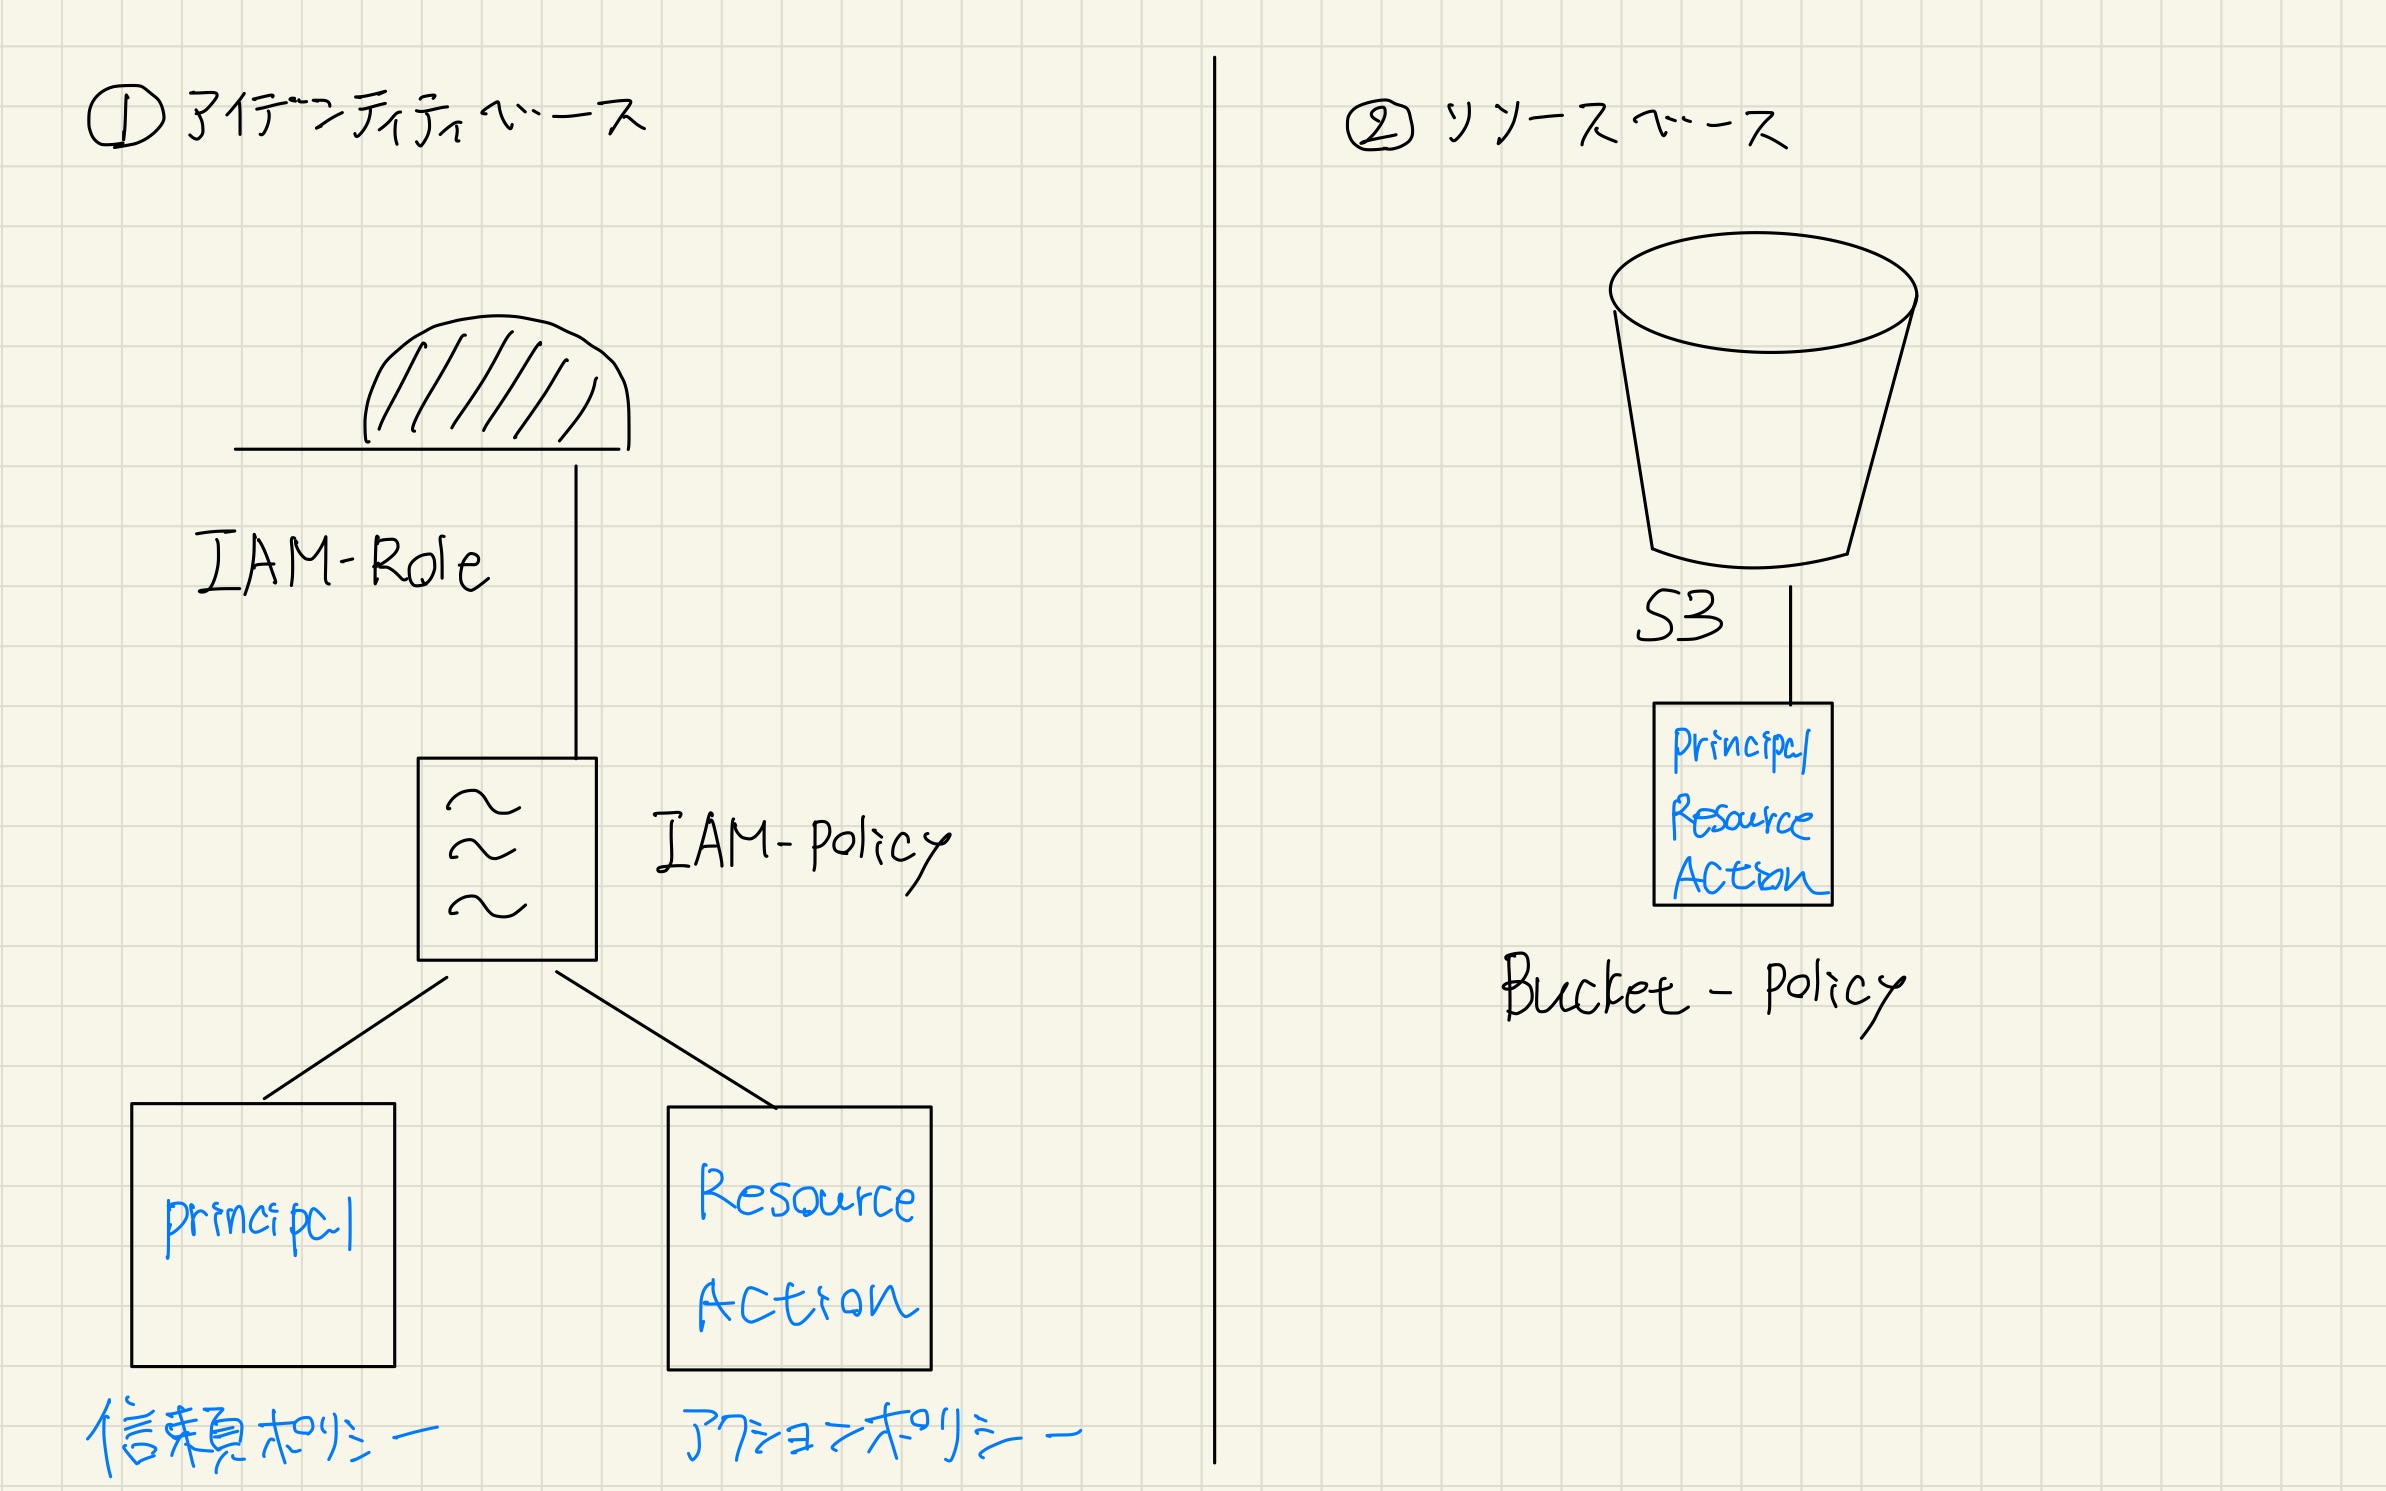 ① アイデンティティベース
IAM-Role
IAM-Policy
principal
信頼ポリシー
Resource
Action
アクションポリシー
② リソースベース
S3
Principal
Resource
Action
Bucket - Policy